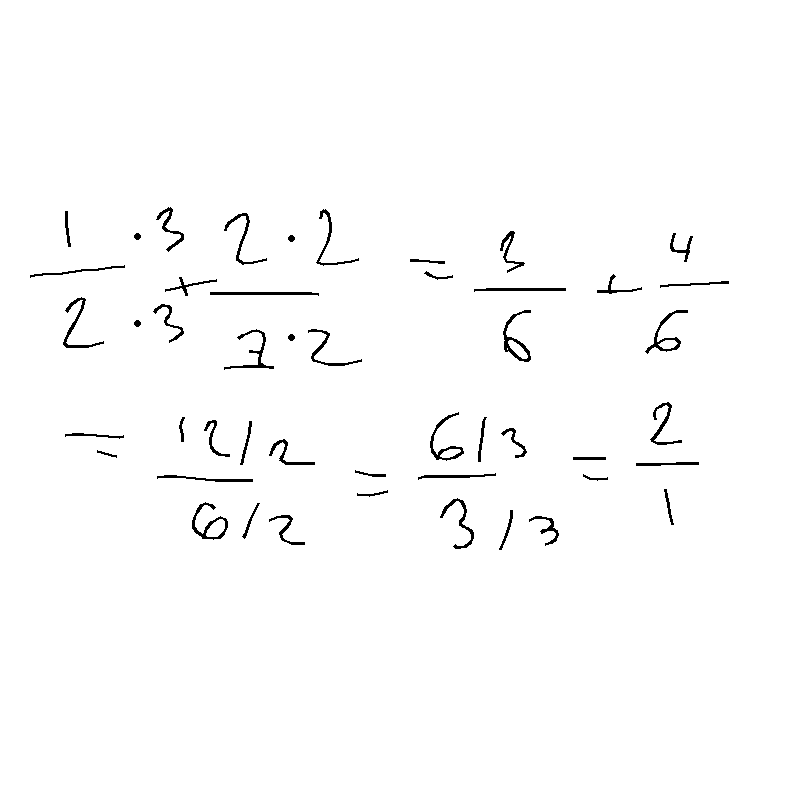 1 · 3 / 2 · 3 + 2 · 2 / 3 · 2 = 3/6 + 4/6
= 12/2 / 6/2 = 6/3 / 3/3 = 2/1